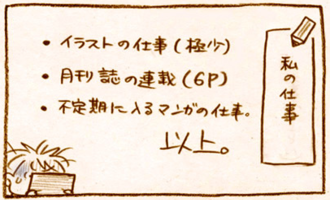 私の仕事
• イラストの仕事(極少)
• 月刊誌の連載(6P)
• 不定期に入るマンガの仕事。
以上。